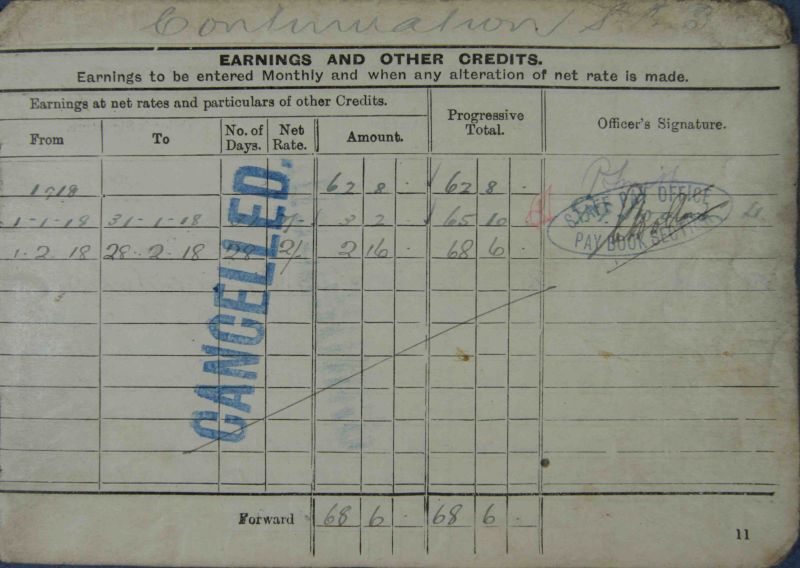 Continuation
EARNINGS AND OTHER CREDITS.
Earnings to be entered Monthly and when any alteration of net rate is made.
Earnings at net rates and particulars of other Credits. Progressive Total. Officer's Signature.
From To No. of Days. Net Rate. Amount.
62 8 . 62 8 .
1-1-18 31-1-18 3 2 . 65 10 .
1.2.18 28.2.18 28 2/- 2 16 . 68 6 .
CANCELLED.
STAFF PAY OFFICE
PAY BOOK SECTION
Forward 68 6 . 68 6 .
11